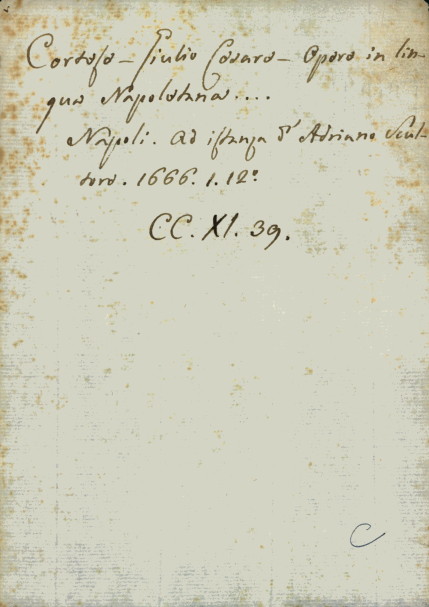 Cortese – Giulio Cesare – Opere in lin-
gua Napoletana....
Napoli. Ad istanza d' Adriano Scul-
tore. 1666. 1. 12°
CC. XI. 39.
C